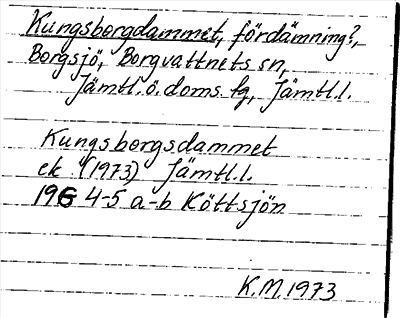 Kungsborgdammet, fördämning?,
Borgsjö, Borgvattnets sn,
Jämtl.ö.doms. tg, Jämtl.l.
Kungsborgsdammet
ek (1973) Jämtl.l.
19G 4-5 a-b Köttsjön
K.M. 1973